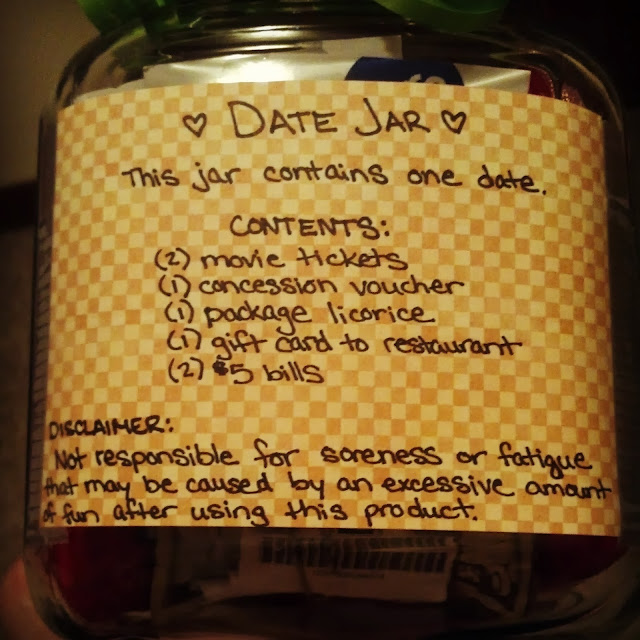 ♡ DATE JAR ♡
This jar contains one date.
CONTENTS:
(2) movie tickets
(1) concession voucher
(1) package licorice
(1) gift card to restaurant
(2) $5 bills
DISCLAIMER:
Not responsible for soreness or fatigue
that may be caused by an excessive amount
of fun after using this product.